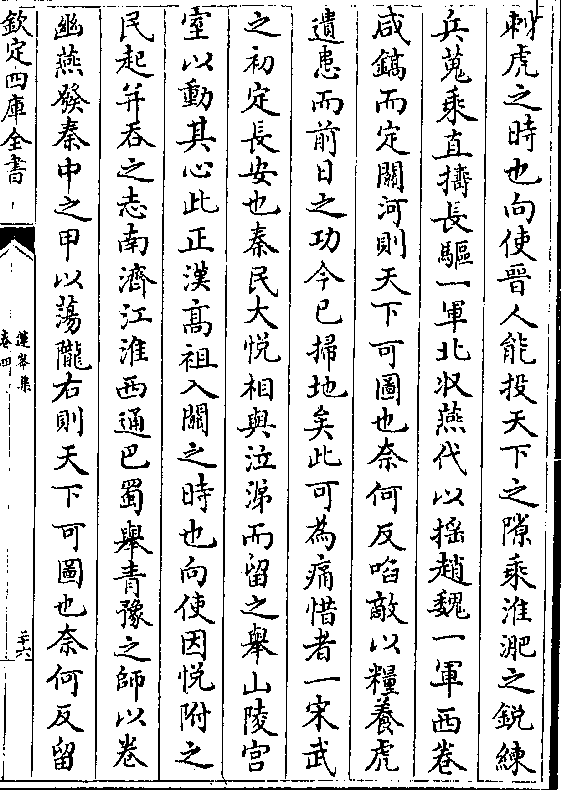 刺虎之時也向使晉人能投天下之隙乘淮淝之銳練
兵蒐乘直擣長驅一軍北收燕代以揺趙魏一軍西卷
咸鎬而定關河則天下可圖也奈何反啗敵以糧養虎
遺患而前日之功今已掃地矣此可為痛惜者一宋武
之初定長安也秦民大悅相與泣涕而留之舉山陵宫
室以動其心此正漢髙祖入關之時也向使因悅附之
民起并吞之志南濟江淮西通巴蜀舉青豫之師以卷
幽燕發秦中之甲以蕩隴右則天下可圖也奈何反留
欽定四庫全書
蓮峯集
卷四
二十六